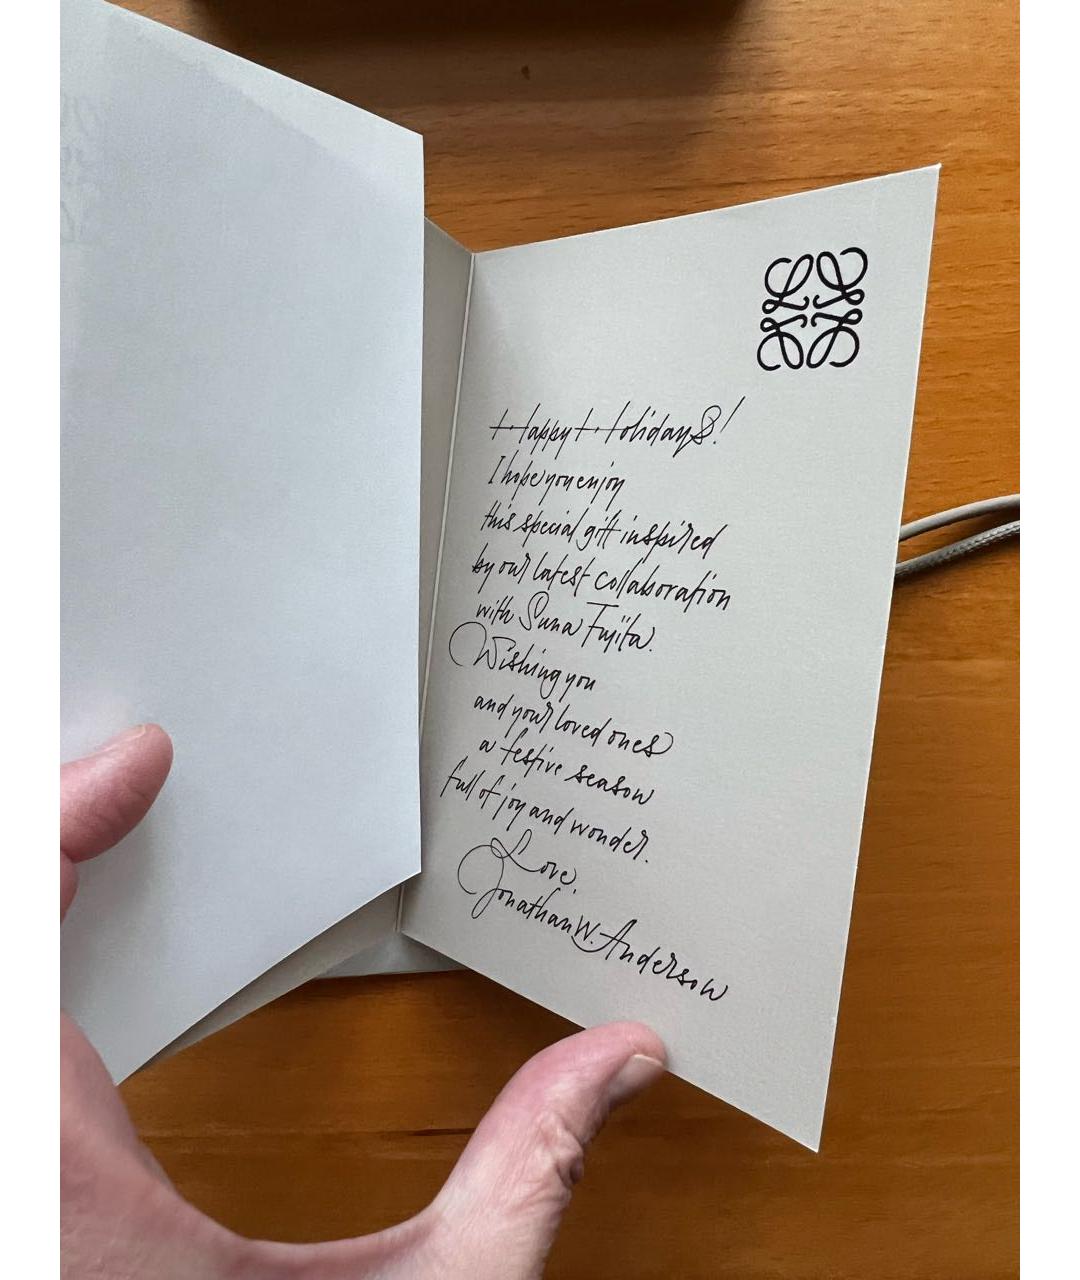 Happy Holidays!
I hope you enjoy
this special gift inspired
by our latest collaboration
with Suna Fujita.
Wishing you
and your loved ones
a festive season
full of joy and wonder.
Love,
Jonathan W. Anderson